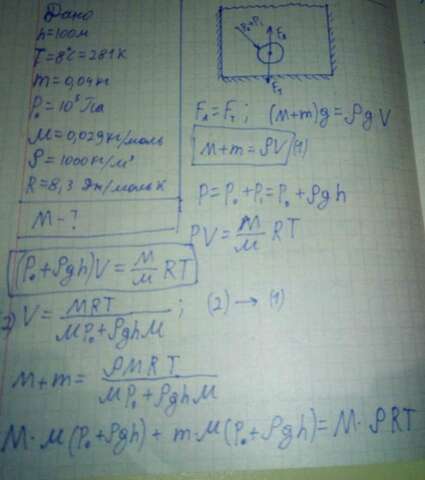 Дано
h=100м
T=8°C=281К
m=0,04кг
P₀=10⁵Па
M=0,029кг/моль
ρ=1000кг/м³
R=8,3 Дж/моль К
M-?
P₀+P₁
F_A
F_T
F_A=F_T; (M+m)g=ρgV
M+m=ρV (1)
P=P₀+P₁=P₀+ρgh
PV=M/μ RT
(P₀+ρgh)V=M/μ RT
2) V=MRT/(μP₀+ρghμ); (2)→(1)
M+m=ρMRT/(μP₀+ρghμ)
M·μ(P₀+ρgh)+m·μ(P₀+ρgh)=M·ρRT